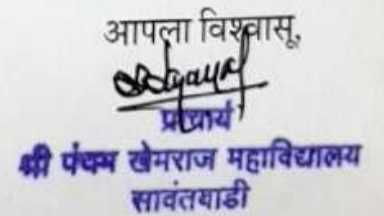 आपला विश्वासू,
प्राचार्य
श्री पंचम खेमराज महाविद्यालय
सावंतवाडी